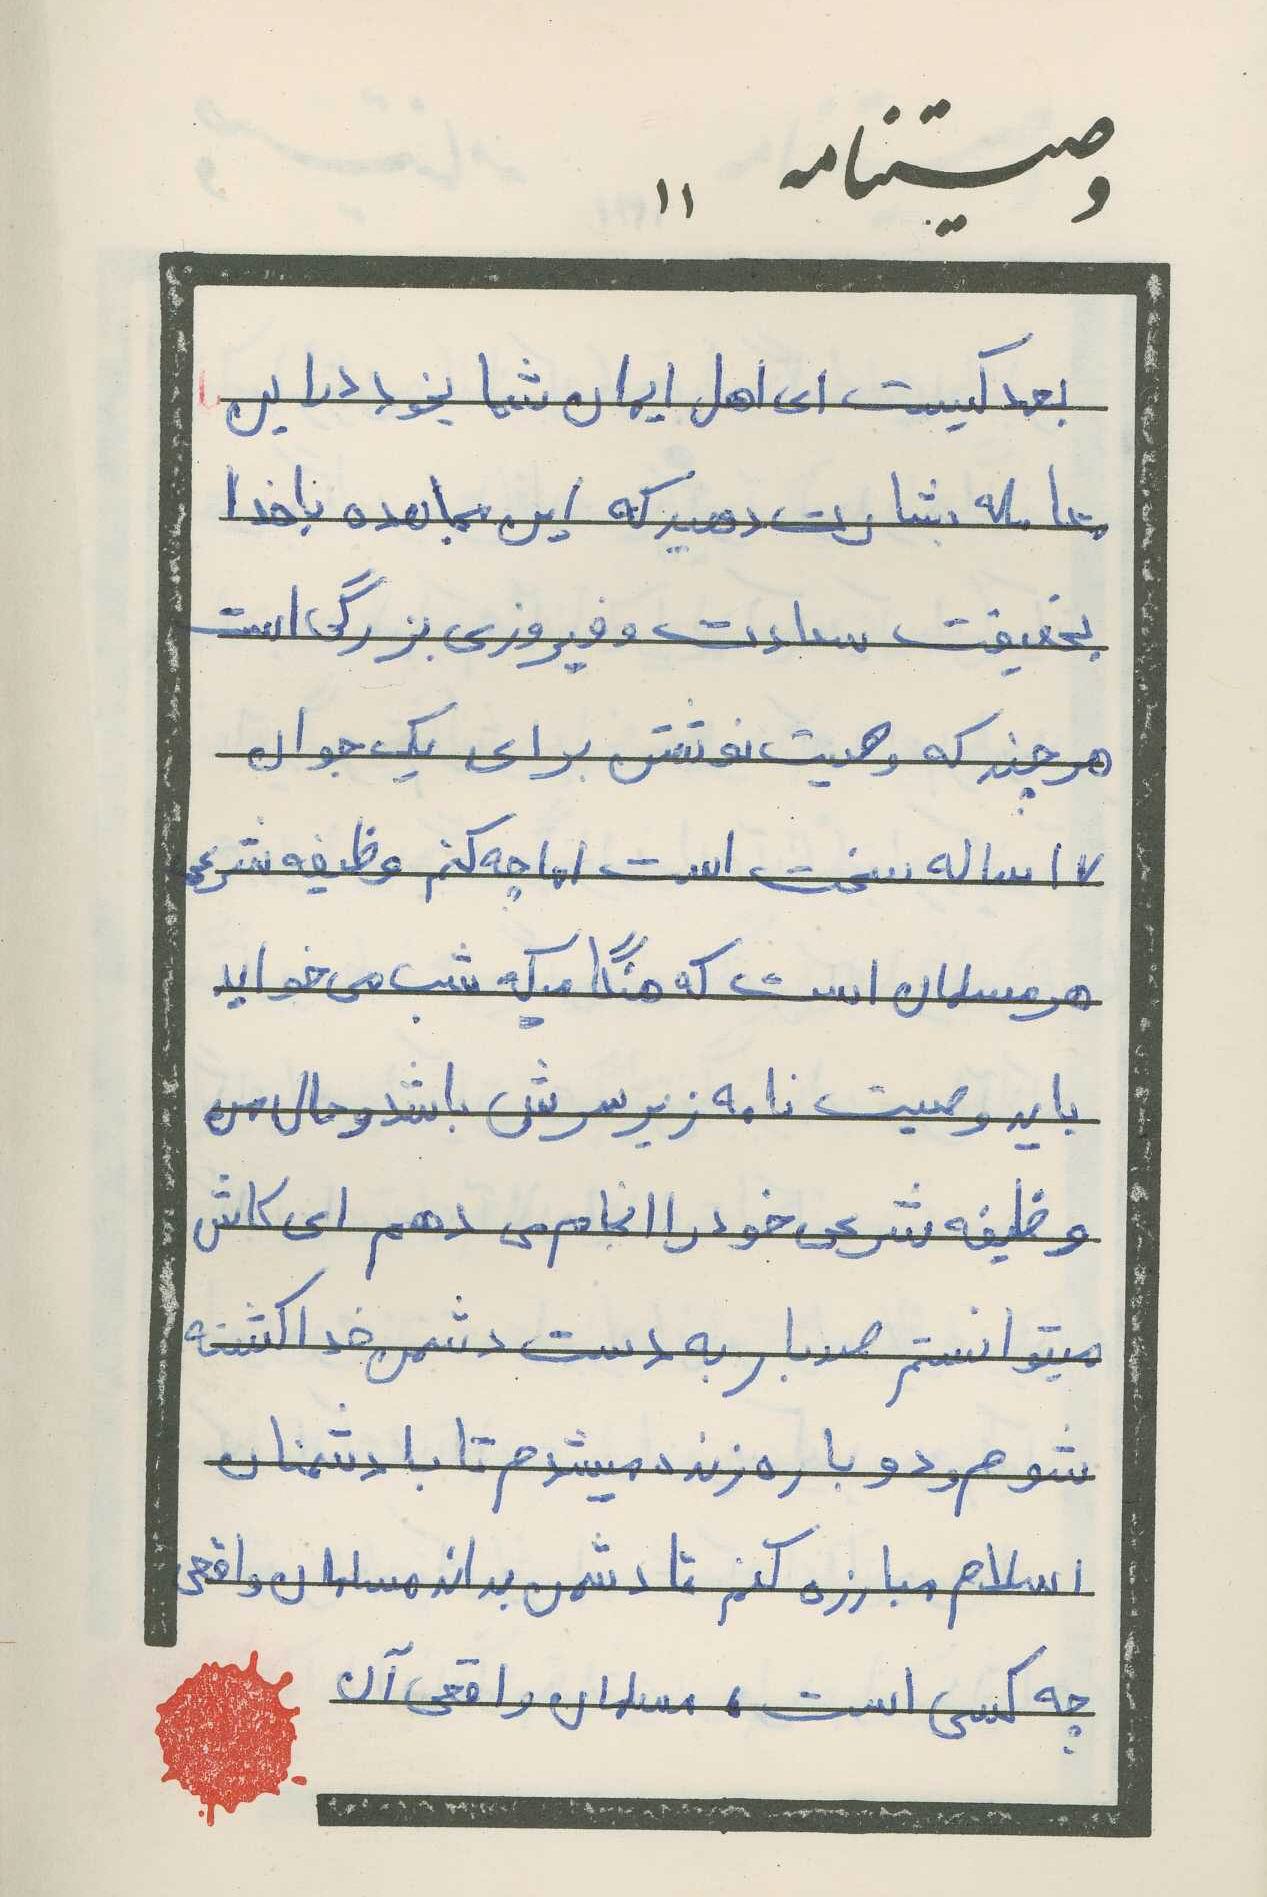 وصیتنامه ۱۱
بعهد کیست ای اهل ایمان شما بخود در این
معامله بشارت دهید که این مجاهده با خدا
بحقیقت سعادت و فیروزی بزرگی است
هر چند که وصیت نوشتن برای یک جوان
۱۷ ساله سخت است اما چه کنم وظیفه شرعی
هر مسلمان است که هنگامیکه شب می خوابد
باید وصیت نامه زیر سرش باشد و حال من
وظیفه شرعی خود را انجام می دهم ای کاش
میتوانستم صدبار به دست دشمن خدا کشته
شوم و دوباره زنده میشدم تا با دشمنان
اسلام مبارزه کنم تا دشمن بداند مسلمان واقعی
چه کسی است، مسلمان واقعی آن